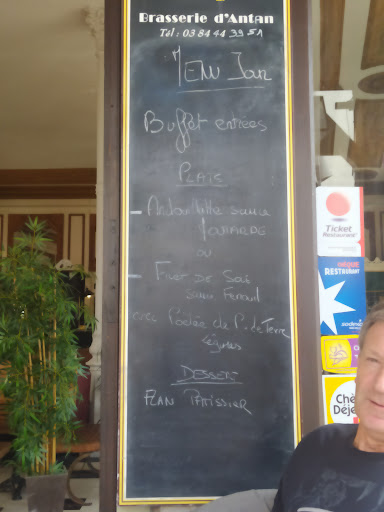 Brasserie d'Antan
Tél : 03 84 44 39 51
MENU Jour
Buffet entrées
PLATS
Andouillette sauce
MOUTARDE
OU
Filet de
sauce Fenouil
avec Poêlée de P. de Terre
Légumes
DESSERT
FLAN PATISSIER
Ticket
Restaurant
CHÈQUE
RESTAURANT
Chè
Déje